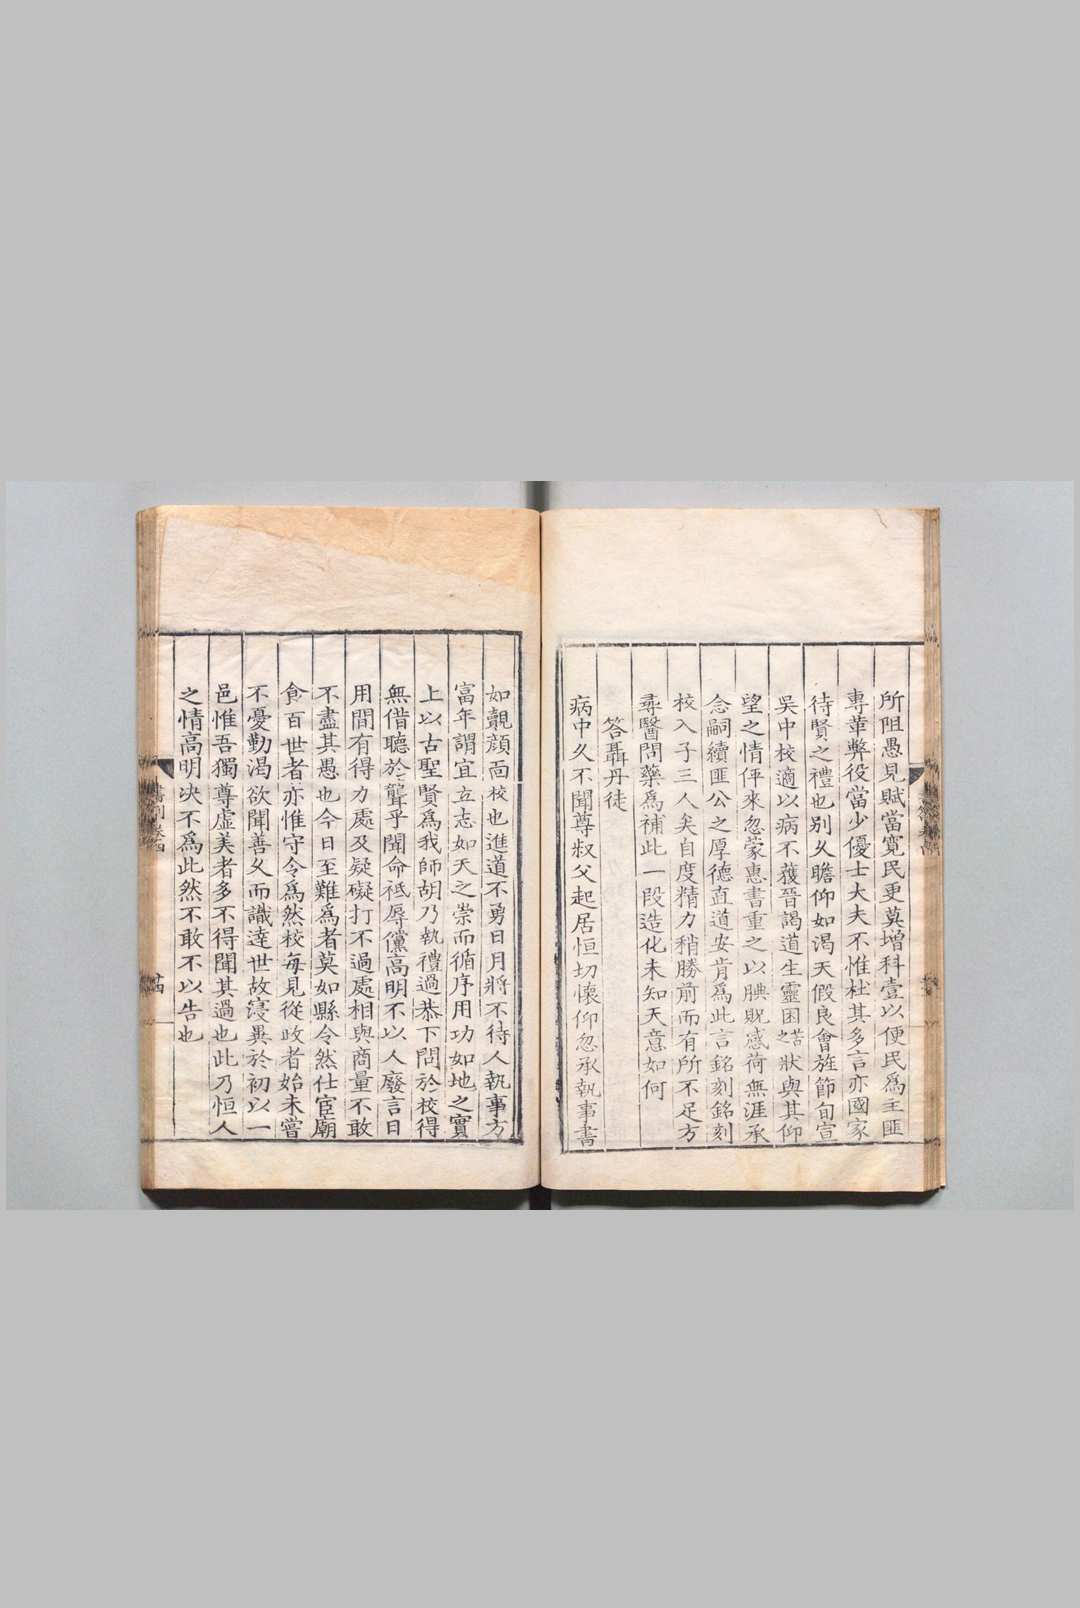 所阻愚見賦當寬民更莫增科壹以便民爲主匪
專華弊役當少優士大夫不惟杜其多言亦國家
待賢之禮也别乆瞻仰如渴天假良會旌節旬宣
吳中校適以病不獲晉謁道生靈困苦之狀與其仰
望之情伻來忽蒙惠書重之以腆貺感荷無涯承
念嗣續匪公之厚德直道安肯爲此言銘刻銘刻
校入子三人矣自度精力稍勝前而有所不足方
尋醫問藥爲補此一段造化未知天意如何
答聶丹徒
病中乆不聞尊叔父起居恒切懷仰忽承執事書
如覿顔面校也進道不勇日月將不待人執事方
富年謂宜立志如天之崇而循序用功如地之實
上以古聖賢爲我師胡乃執禮過恭下問於校得
無借聽於聾乎聞命祗辱儻高明不以人廢言日
用間有得力處及疑礙打不過處相與商量不敢
不盡其愚也今日至難爲者莫如縣令然仕宦廟
食百世者亦惟守令爲然校每見從政者始未嘗
不憂勤渴欲聞善乆而識達世故寖異於初以一
邑惟吾獨尊虛美者多不得聞其過也此乃恒人
之情高明决不爲此然不敢不以告也